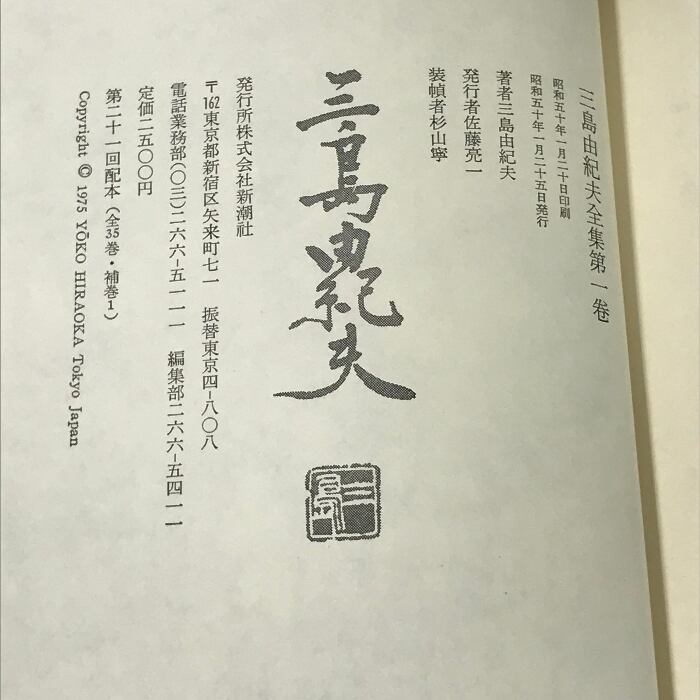 三島由紀夫全集第一巻
昭和五十年一月二十日印刷
昭和五十年一月二十五日発行
著者三島由紀夫
発行者佐藤亮一
装幀者杉山寧
三島由紀夫
三島
発行所株式会社新潮社
〒162東京都新宿区矢来町七一 振替東京四-八〇八
電話業務部(〇三)二六六-五一一一 編集部二六六-五四一一
定価二五〇〇円
第二十一回配本(全35巻・補巻1)
Copyright © 1975 YŌKO HIRAOKA Tokyo Japan